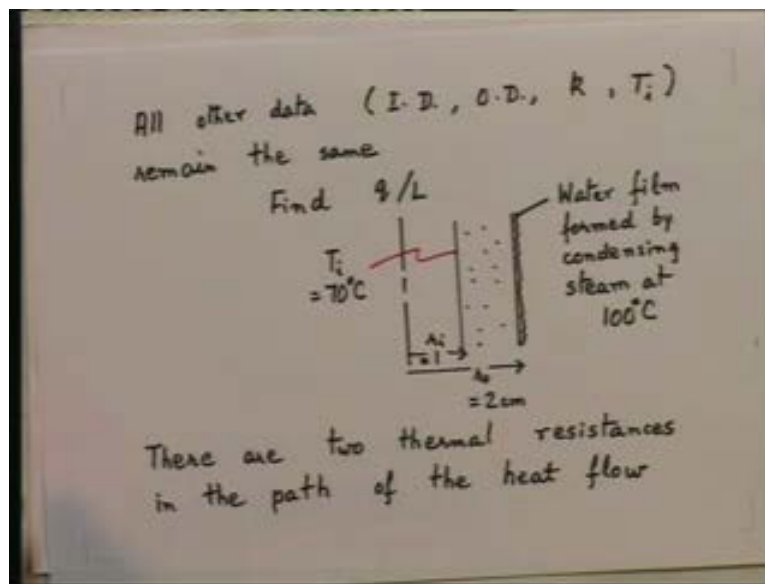 All other data (I.D., O.D., k, Ti)
remain the same
Find q/L
Ti
= 70°C
Water film
formed by
condensing
steam at
100°C
ri
= 1
ro
= 2 cm
There are two thermal resistances
in the path of the heat flow